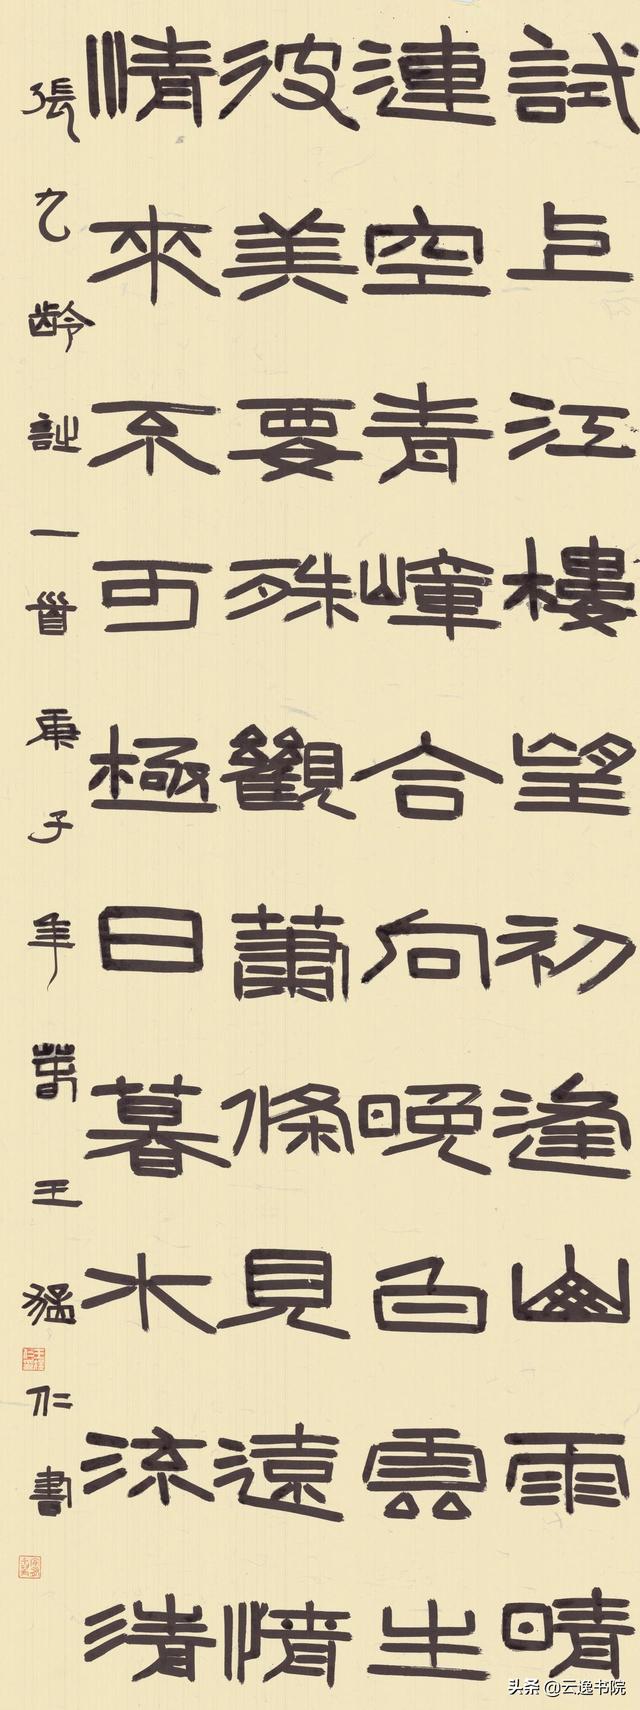 試上江樓望初逢山雨晴
連空青嶂合向晚白雲生
彼美要殊觀蕭條見遠情
情來不可極日暮水流清
張九齡詩一首庚子年春王猛仁書
头条 @云逸书院